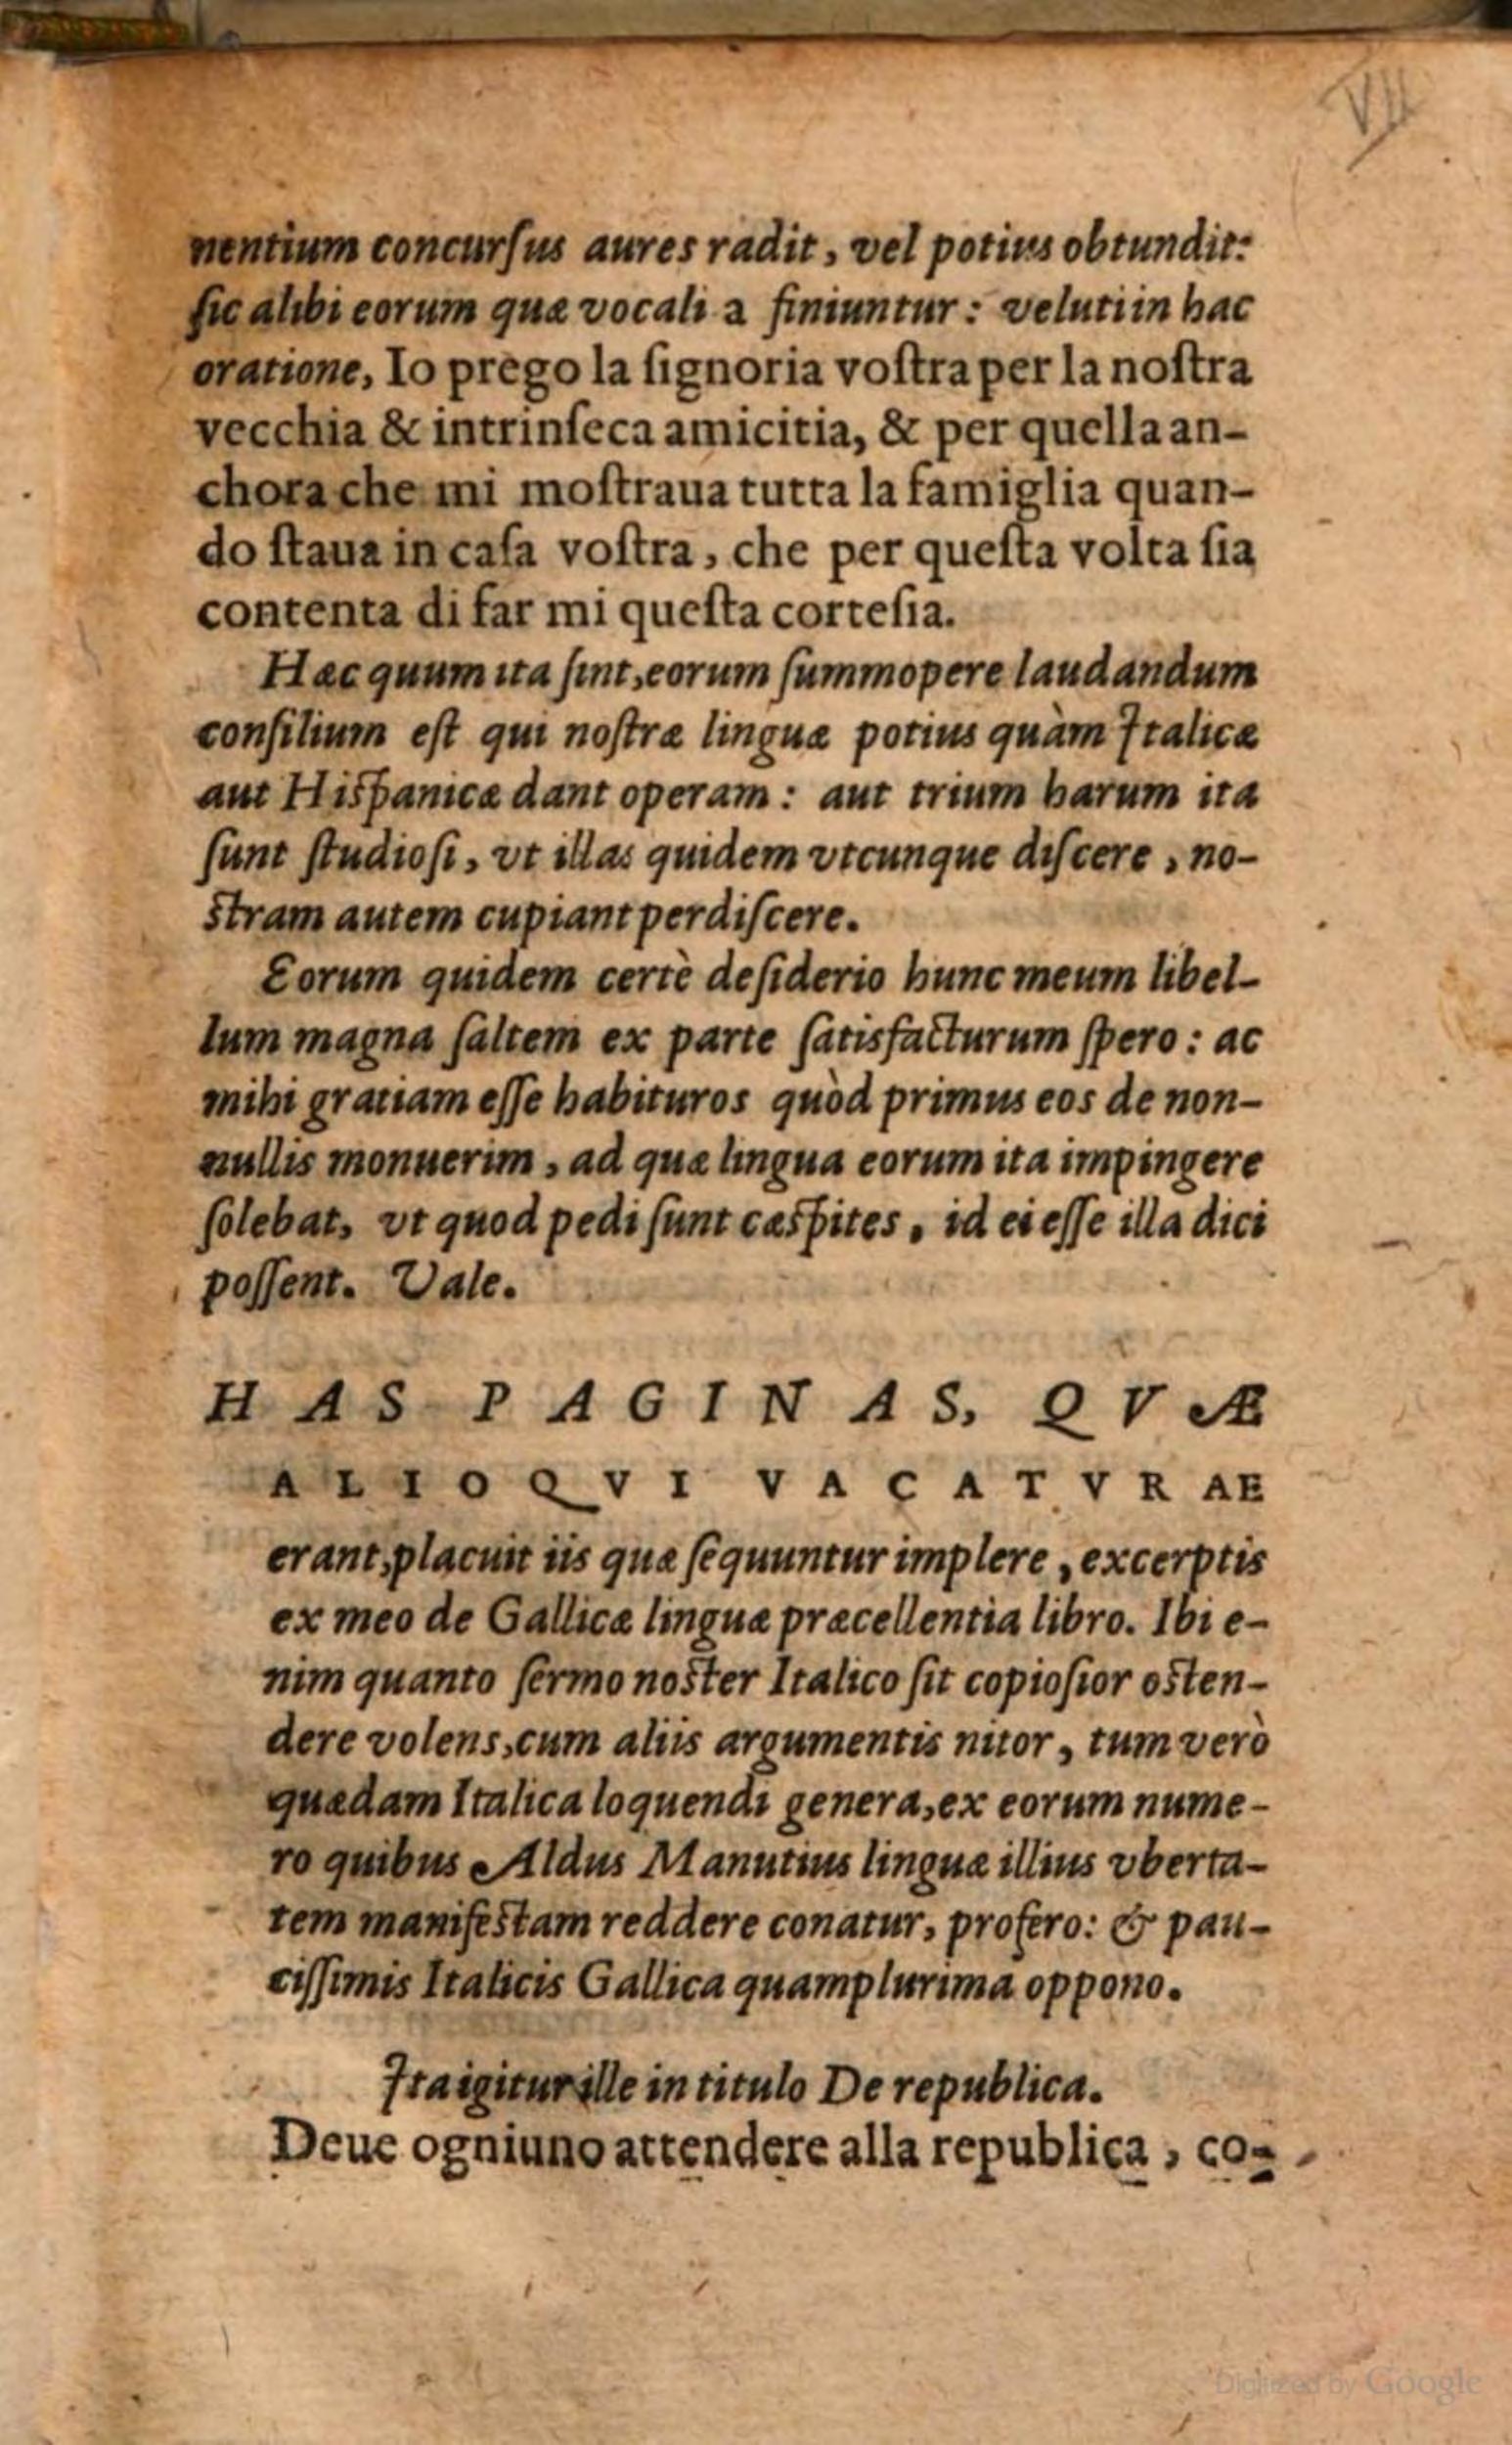 VII
nentium concurſus aures radit, vel potius obtundit:
ſic alibi eorum quæ vocali a finiuntur: veluti in hac
oratione, Io prego la ſignoria voſtra per la noſtra
vecchia & intrinſeca amicitia, & per quella an-
chora che mi moſtraua tutta la famiglia quan-
do ſtaua in caſa voſtra, che per queſta volta ſia
contenta di far mi queſta corteſia.
Hæc quum ita ſint, eorum ſummopere laudandum
conſilium eſt qui noſtræ linguæ potius quàm Italicæ
aut Hiſpanicæ dant operam: aut trium harum ita
ſunt ſtudioſi, vt illas quidem vtcunque diſcere, no-
ſtram autem cupiant perdiſcere.
Eorum quidem certè deſiderio hunc meum libel-
lum magna ſaltem ex parte ſatisfacturum ſpero: ac
mihi gratiam eſſe habituros quòd primus eos de non-
nullis monuerim, ad quæ lingua eorum ita impingere
ſolebat, vt quod pedi ſunt cæſpites, id ei eſſe illa dici
poſſent. Vale.
HAS PAGINAS, QVÆ
ALIOQVI VACATVRAE
erant, placuit iis quæ ſequuntur implere, excerptis
ex meo de Gallicæ linguæ præcellentia libro. Ibi e-
nim quanto ſermo noſter Italico ſit copioſior oſten-
dere volens, cum aliis argumentis nitor, tum verò
quædam Italica loquendi genera, ex eorum nume-
ro quibus Aldus Manutius linguæ illius vberta-
tem manifeſtam reddere conatur, profero: & pau-
ciſſimis Italicis Gallica quamplurima oppono.
Ita igitur ille in titulo De republica.
Deue ogniuno attendere alla republica, co-
Digitized by Google